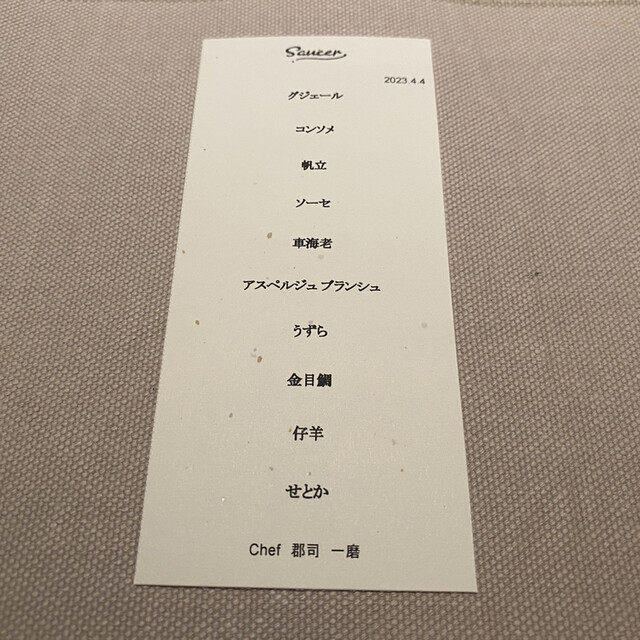 Saucer
2023.4.4
グジェール
コンソメ
帆立
ソーセ
車海老
アスペルジュ ブランシュ
うずら
金目鯛
仔羊
せとか
Chef 郡司 一磨